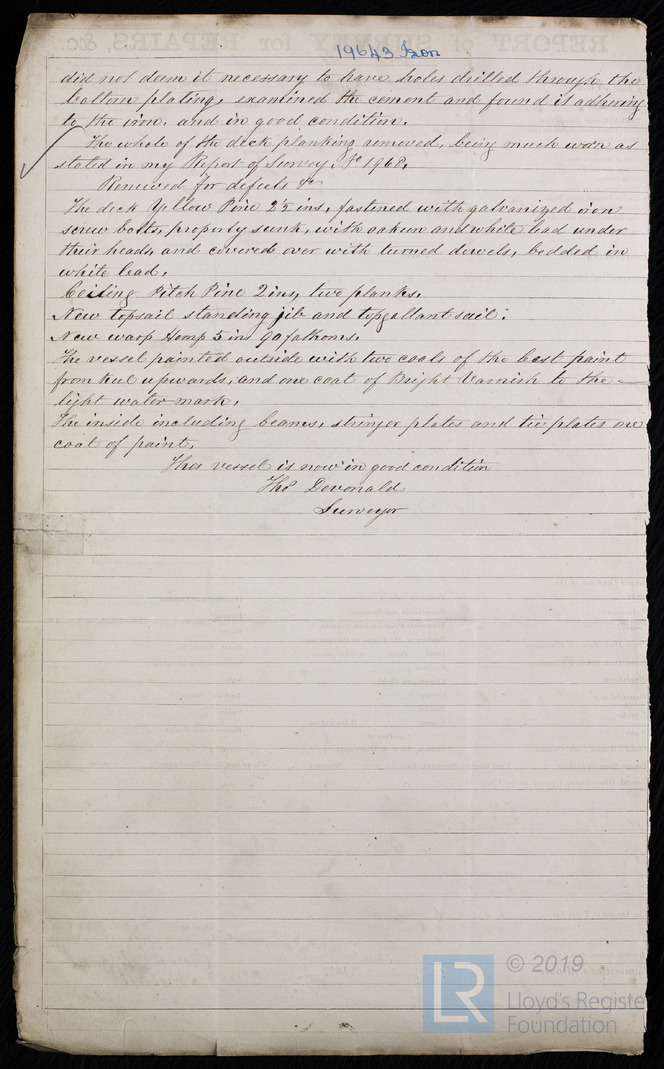 19643 Iron
REPORT of SURVEY for REPAIRS, &c.
did not deem it necessary to have holes drilled through the
bottom plating, examined the cement and found it adhering
to the iron, and in good condition.
The whole of the deck planking removed, being much worn as
stated in my Report of Survey, No 1968.
Renewed for defects &c
The deck Yellow Pine 2½ ins, fastened with galvanized iron
screw bolts, properly sunk, with oakum and white lead under
their heads, and covered over with turned dowels, bedded in
white lead.
Ceiling Pitch Pine 2 ins, two planks.
New topsail standing jib and topgallant sail.
New warp Hemp 5 ins 90 fathoms.
The vessel painted outside with two coats of the best paint
from keel upwards, and one coat of Bright Varnish to the
light water mark.
The inside including beams, stringer plates and tie plates one
coat of paint.
This vessel is now in good condition
Thos Devonald
Surveyor
© 2019
LR
Lloyd's Register
Foundation